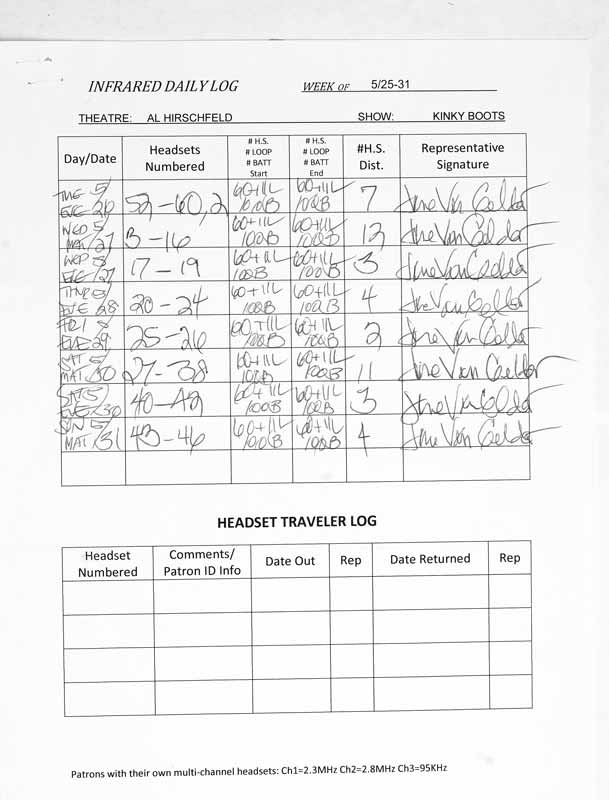 INFRARED DAILY LOG WEEK OF 5/25-31
THEATRE: AL HIRSCHFELD SHOW: KINKY BOOTS
Day/Date Headsets Numbered # H.S. # LOOP # BATT Start # H.S. # LOOP # BATT End #H.S. Dist. Representative Signature
TUE 5/ EVE 26 52-60,2 60+11L 100B 60+11L 100B 7 Jane Van Gelder
WED 5 MAT/27 3-16 60+11L 100B 60+11L 100B 13 Jane Van Gelder
WED 5 EVE/27 17-19 60+11L 100B 60+11L 100B 3 Jane Van Gelder
THUR 5/ EVE 28 20-24 60+11L 100B 60+11L 100B 4 Jane Van Gelder
FRI 5 EVE 29 25-26 60+11L 100B 60+11L 100B 2 Jane Van Gelder
SAT 5/ MAT 30 27-38 60+11L 100B 60+11L 100B 11 Jane Van Gelder
SAT 5 EVE/30 40-42 60+11L 100B 60+11L 100B 3 Jane Van Gelder
SUN 5/ MAT/31 43-46 60+11L 100B 60+11L 100B 4 Jane Van Gelder
HEADSET TRAVELER LOG
Headset Numbered Comments/ Patron ID Info Date Out Rep Date Returned Rep
Patrons with their own multi-channel headsets: Ch1=2.3MHz Ch2=2.8MHz Ch3=95KHz